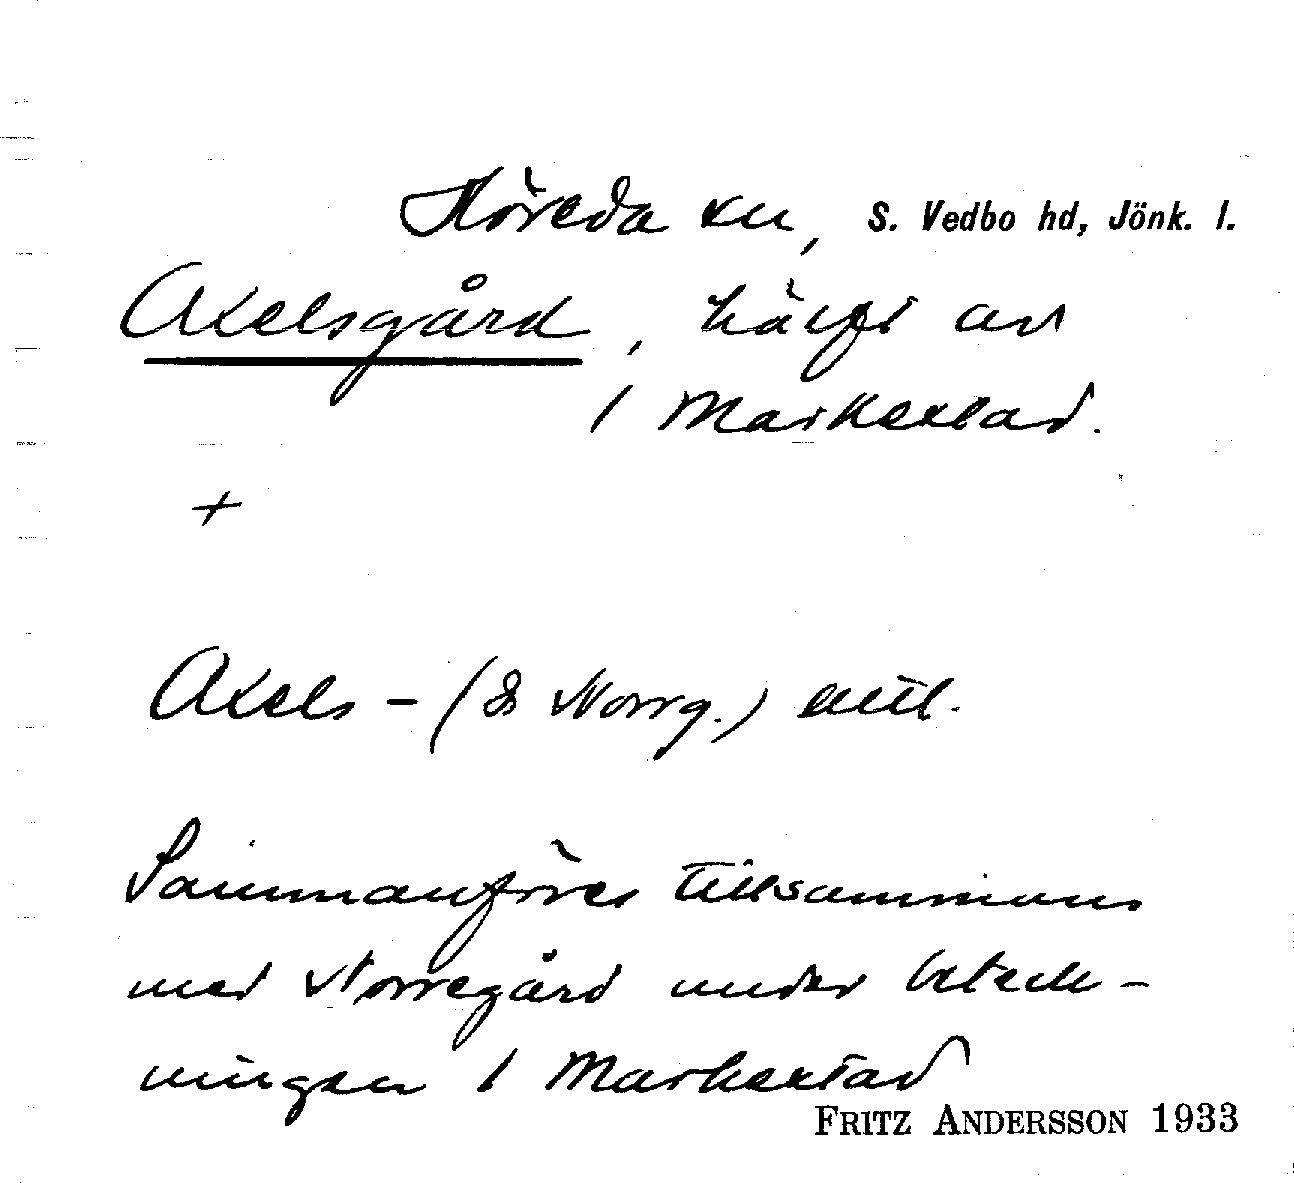 Höreda sn, S. Vedbo hd, Jönk. l.
Axelsgård, hälft av
1 Markestad.
+
Axels - (& Norrg.) ettl.
Sammanföres tillsammans
med Norregård under beteck-
ningen 1 Markestad
FRITZ ANDERSSON 1933